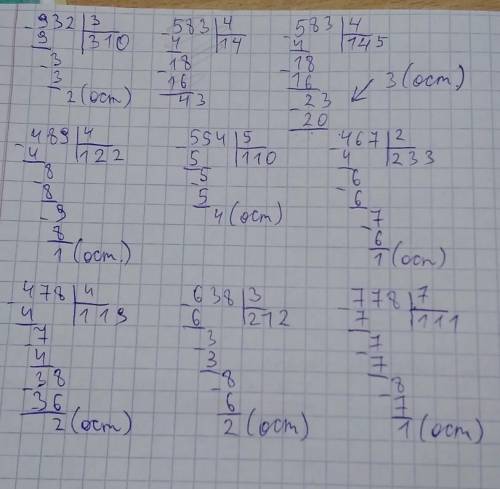 932 | 3
9 | 310
3
3
2 (ост)
583 | 4
4 | 14
18
16
43
583 | 4
4 | 145
18
16
23
20
3 (ост)
489 | 4
4 | 122
8
8
9
8
1 (ост.)
554 | 5
5 | 110
5
5
4 (ост)
467 | 2
4 | 233
6
6
7
6
1 (ост)
478 | 4
4 | 119
7
4
38
36
2 (ост)
638 | 3
6 | 212
3
3
8
6
2 (ост)
778 | 7
7 | 111
7
7
8
7
1 (ост)